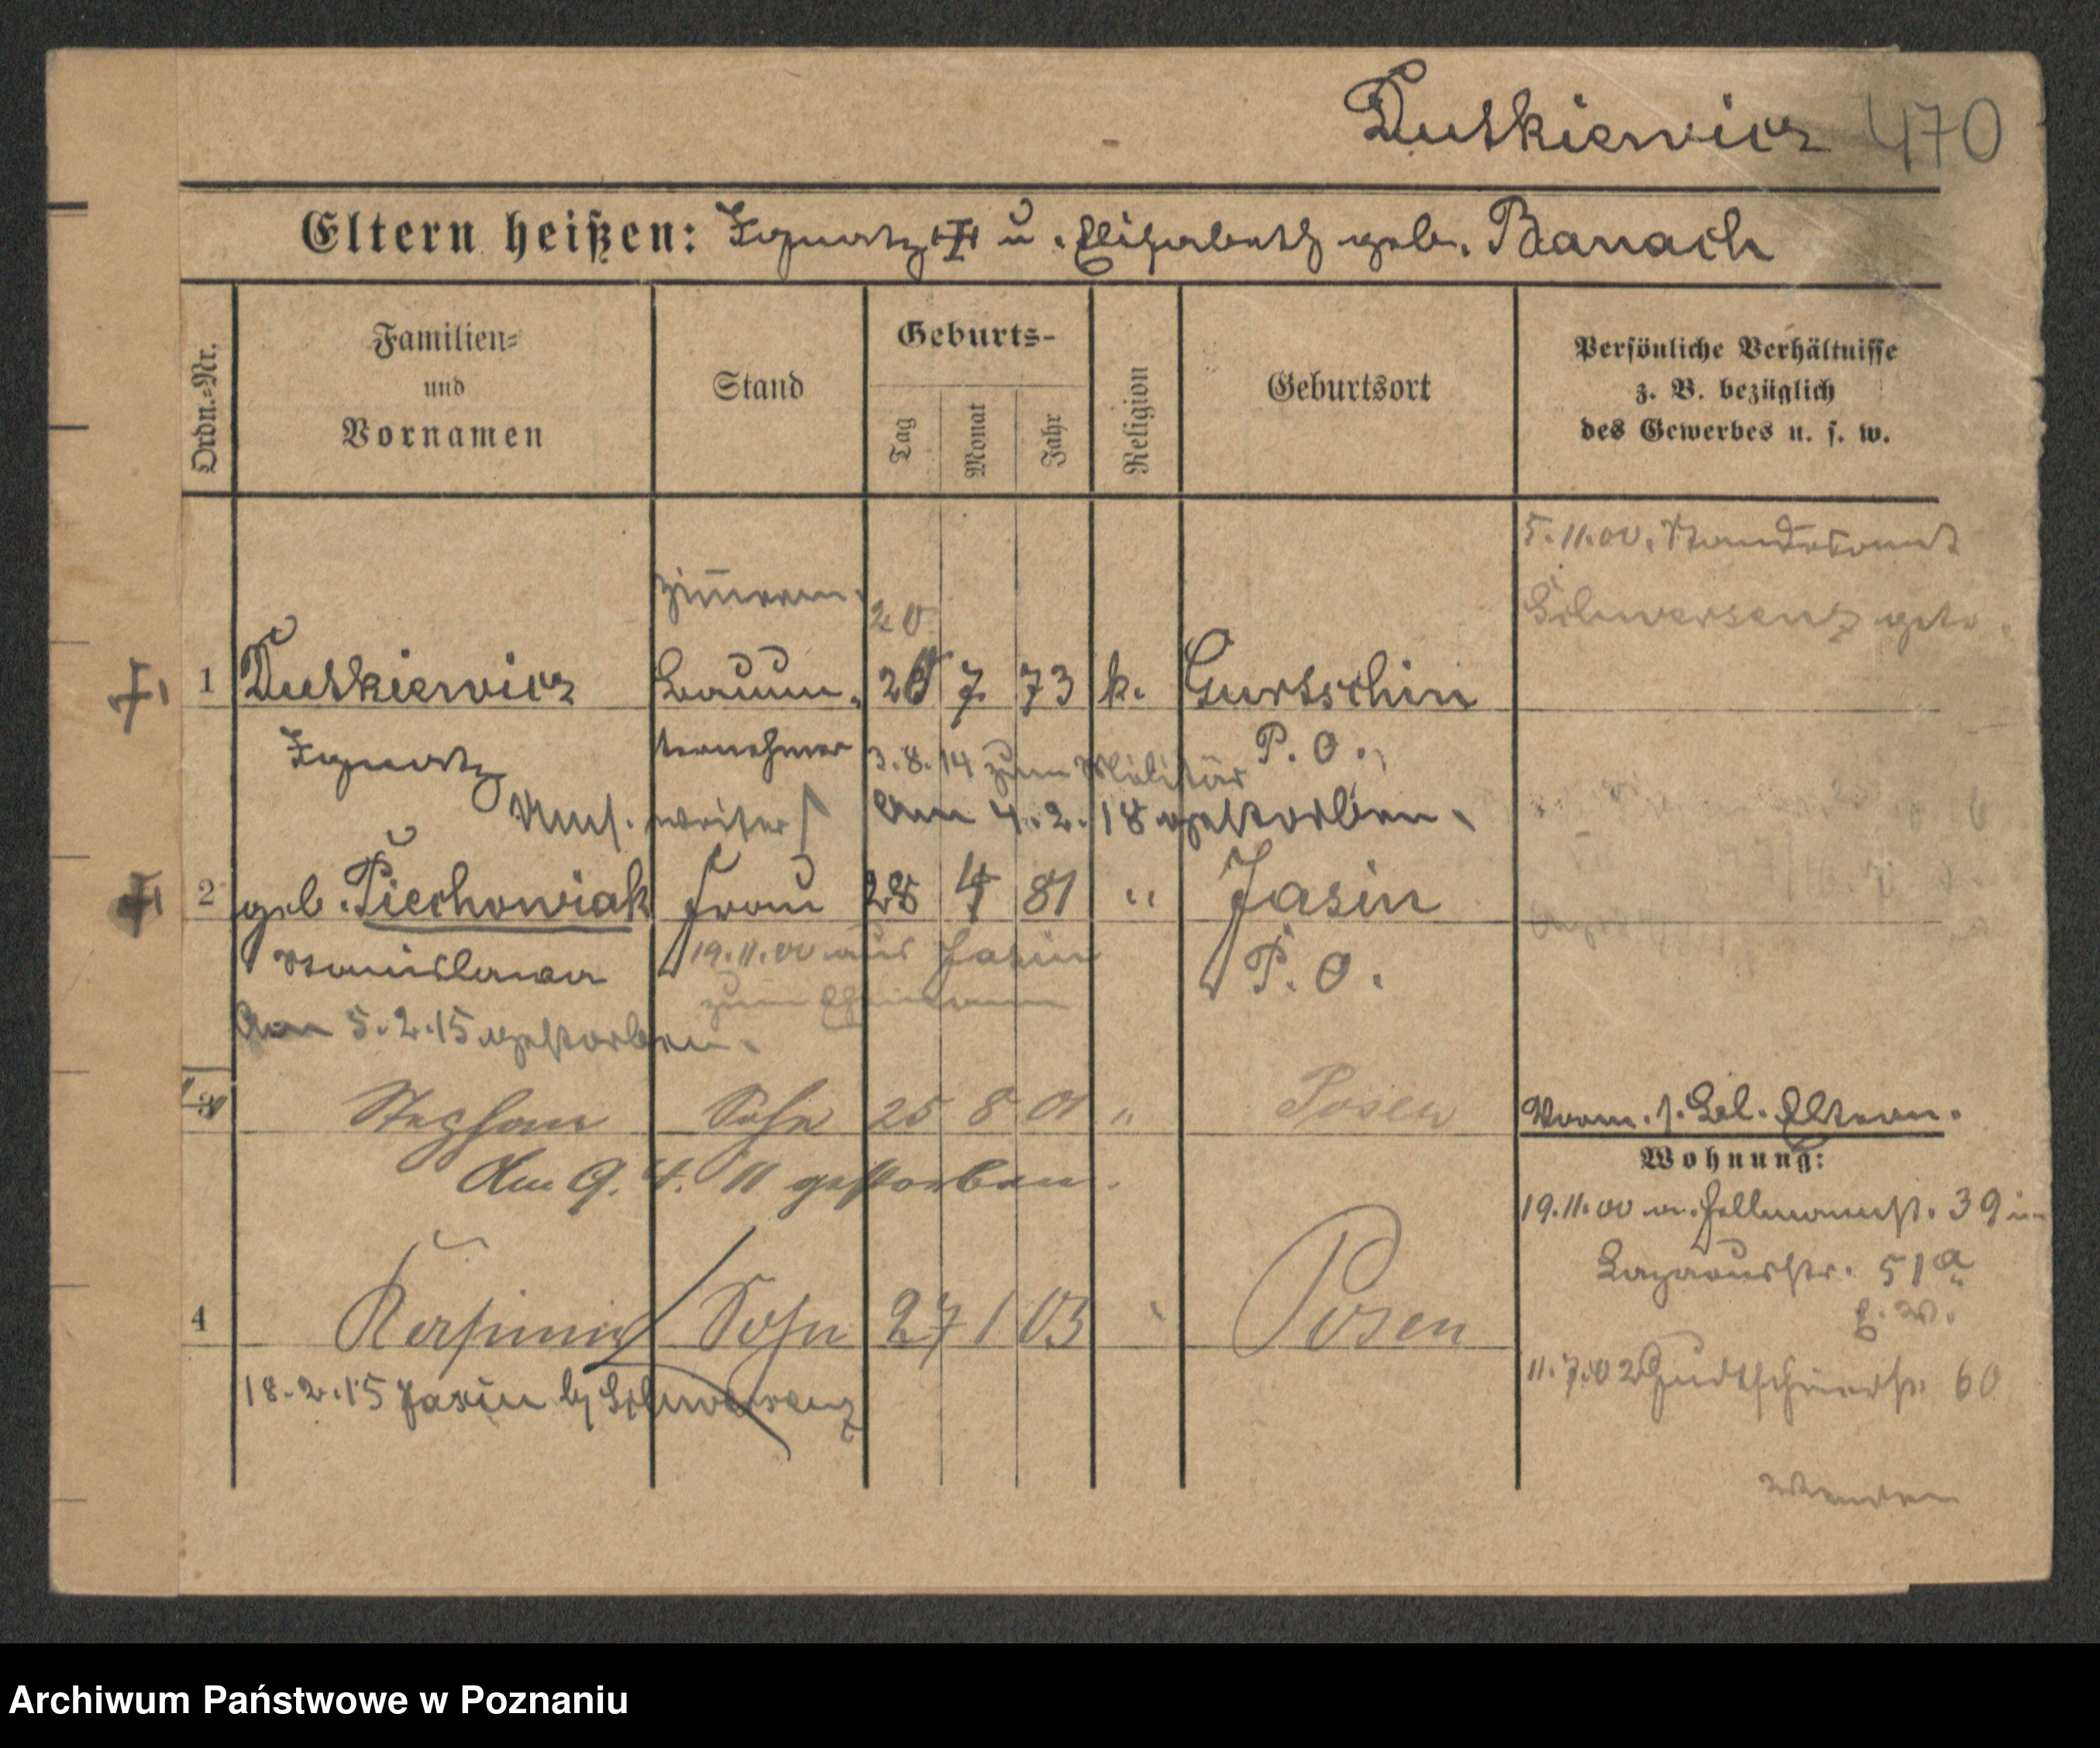 Dutkiewicz 470
Eltern heißen: Ignatz † u. Elisabeth geb. Banach
Ordn.-Nr.
Familien- und Vornamen
Stand
Geburts-
Tag Monat Jahr
Religion
Geburtsort
Persönliche Verhältnisse
z. B. bezüglich
des Gewerbes u. s. w.
5.11.00. Standesamt
Schwersenz geb.
Zim̄erm.
20
† 1 Dutkiewicz Bauun- 7 73 k. Gurtschin
Ignatz ternehmer 3.8.14 zum Militär P. O.
weiser Am 4.2.18 gestorben.
† 2 geb. Piechowiak Frau 28 4 81 " Jasin
Stanislawa 19.11.00 aus Jasin P. O.
zum Ehemann
Am 5.2.15 gestorben.
3 Stephan Sohn 25 8 01 " Posen
Am 9. 4. 11 gestorben.
4 Kasimir Sohn 27 1 03 " Posen
18.2.15 Jasin b/ Schwersenz
Vorm. s. Bel. Eltern.
Wohnung:
19.11.00 v. Hellmannst. 39 in
Lazarusstr. 51a
E. W.
11.7.02 60
Wenden
Archiwum Państwowe w Poznaniu